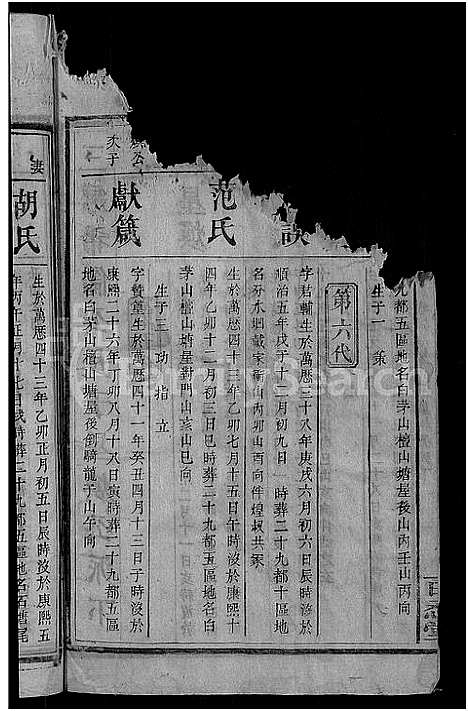 九都五區地名白茅山檀山塘屋後山内壬山丙向
生子一 策
第六代
字君輔生於萬曆三十八年庚戌六月初六日辰時沒於
順治五年戊子十月初九日 時葬二十九都十區地
名谷水迴戴家衝山内卯山酉向伴煌叔共冢
范氏
生於萬曆四十三年乙卯七月十五日午時沒於康熙十
四年乙卯十二月初三日 時葬二十九都五區地名白
茅山檀山塘屋對門山亥山巳向
生子三 功 指 立
獻箴
字贊皇生於萬曆四十一年癸丑四月十三日子時沒於
康熙二十六年丁卯八月十八日寅時葬二十九都五區
地名白茅山檀山塘屋後倒騎龍子山午向
次子
妻
胡氏
生於萬曆四十三年乙卯正月初五日辰時沒於康熙五
年丙午正月十七日戌時葬二十九都五區地名石塘尾